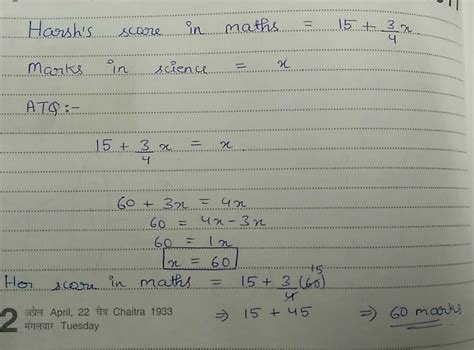 Harsh's score in maths = 15 + 3/4 x
Marks in science = x
ATQ:-
15 + 3/4 x = x
60 + 3x = 4x
60 = 4x - 3x
60 = 1x
x = 60
Her score in maths = 15 + 3/4 (60) 15
2 अप्रैल April, 22 चैत्र Chaitra 1933
⇒ 15 + 45 ⇒ 60 marks
मंगलवार Tuesday